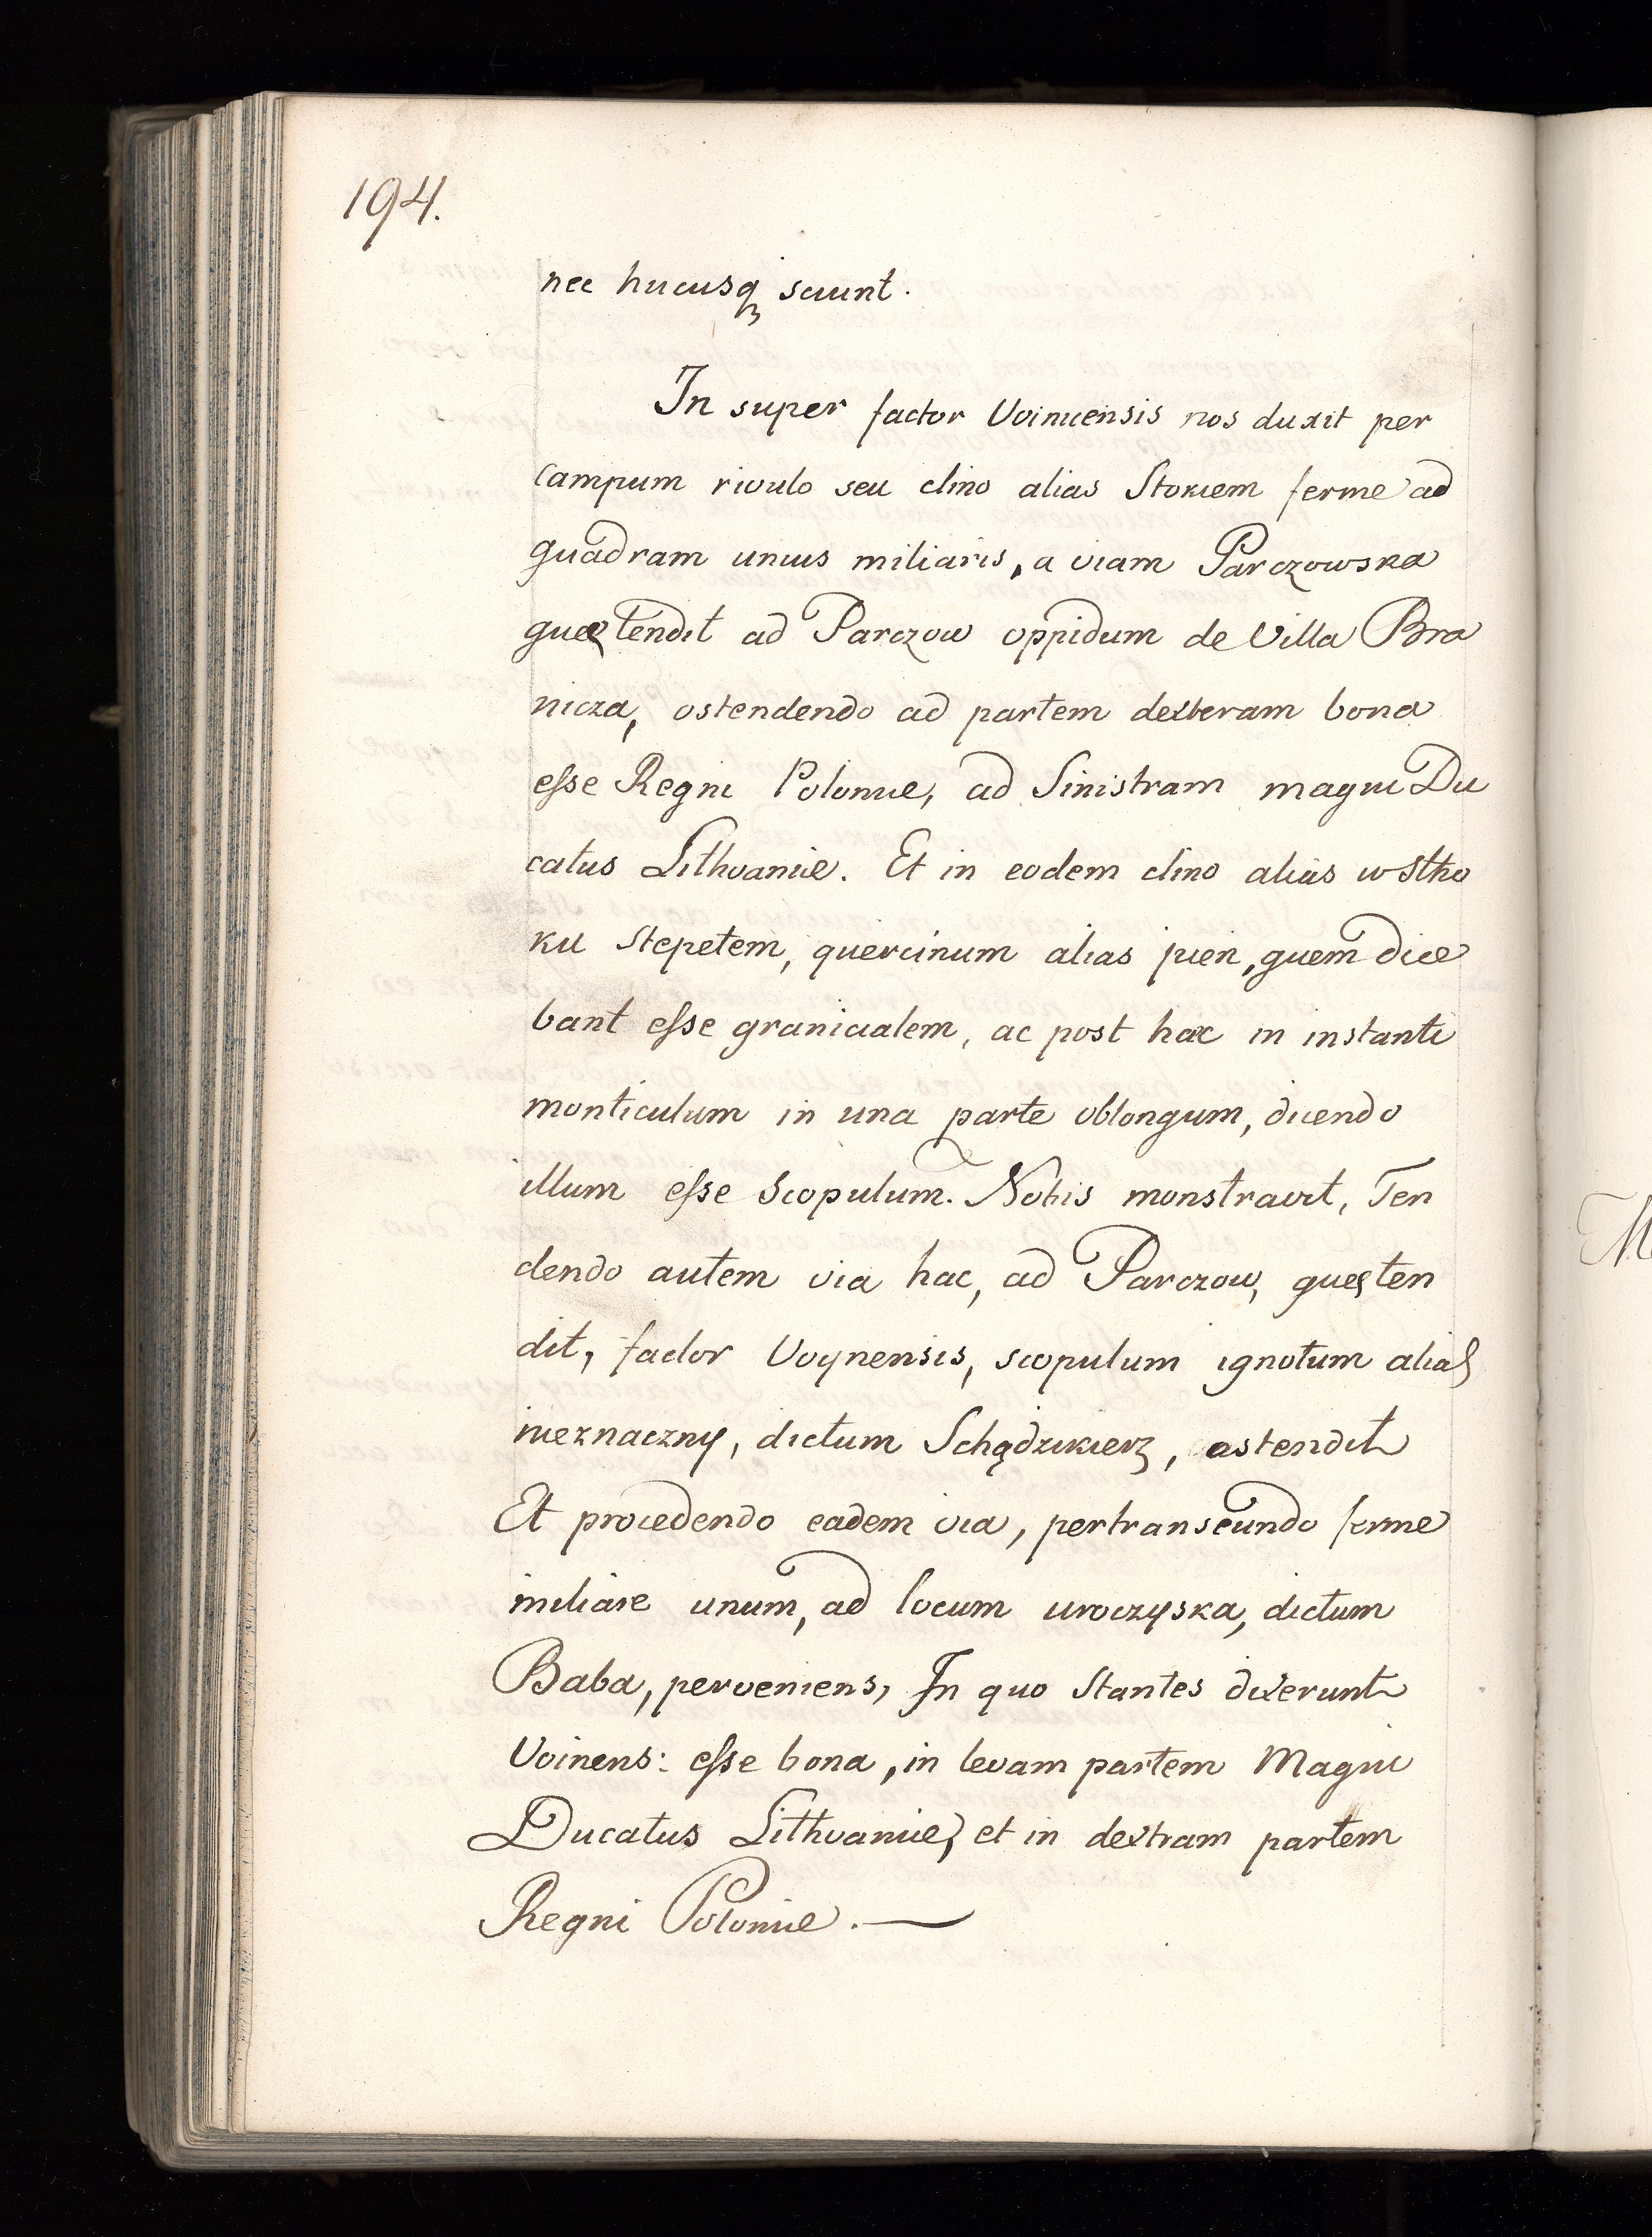 194.
nec hucusq sciunt.
In super factor Voiniensis nos duxit per
campum rivulo seu clino alias Stokiem ferme ad
quadram unius miliaris, a viam Parczowska
quæ tendit ad Parczow oppidum de Villa Bra
nicza, ostendendo ad partem dexteram bona
esse Regni Polonie, ad Sinistram magni Du
catus Lithvanie. Et in eodem clino alias w Stho
ku stepetem, quercinum alias pien, quem dice
bant esse granicialem, ac post hæc in instanti
monticulum in una parte oblongum, dicendo
illum esse Scopulum. Nobis monstravit, Ten
dendo autem via hac, ad Parczow, quæ ten
dit, factor Voynensis, scopulum ignotum alias
nieznaczny, dictum Schądzikierz, ostendit
Et procedendo eadem via, pertranseundo ferme
miliare unum, ad locum uroczyska, dictum
Baba, perveniens, In quo Stantes dixerunt
Voinens: esse bona, in levam partem Magni
Ducatus Lithvanie, et in dextram partem
Regni Polonie. —